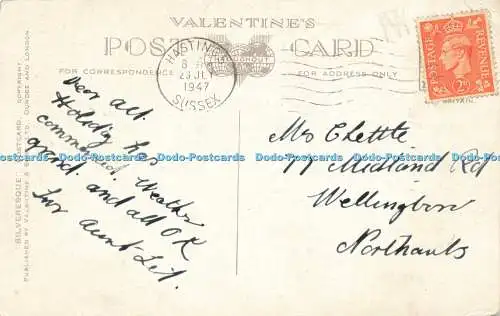 VALENTINE'S
POST CARD
FOR CORRESPONDENCE
FOR ADDRESS ONLY
HASTINGS
JUL
1947
SUSSEX
POSTAGE
REVENUE
Dear all.
Holiday has
commenced. Weather
grand. and all O.K
Luv Aunt Lit.
Mrs Chettle
77 Midland Rd
Wellingboro
Northants
SILVERESQUE
POSTCARD. COPYRIGHT.
PUBLISHED BY VALENTINE & SONS, LTD., DUNDEE AND LONDON
Dodo-Postcards Dodo-Postcards Dodo-Postcards Dodo-Postcards Dodo-Postcards Dodo-Postcards